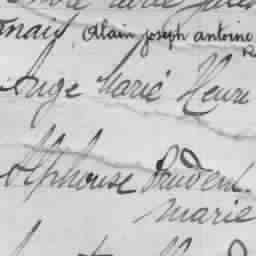 Alain joseph antoine
Ange Marie Henri
Alphonse Prudent
Marie